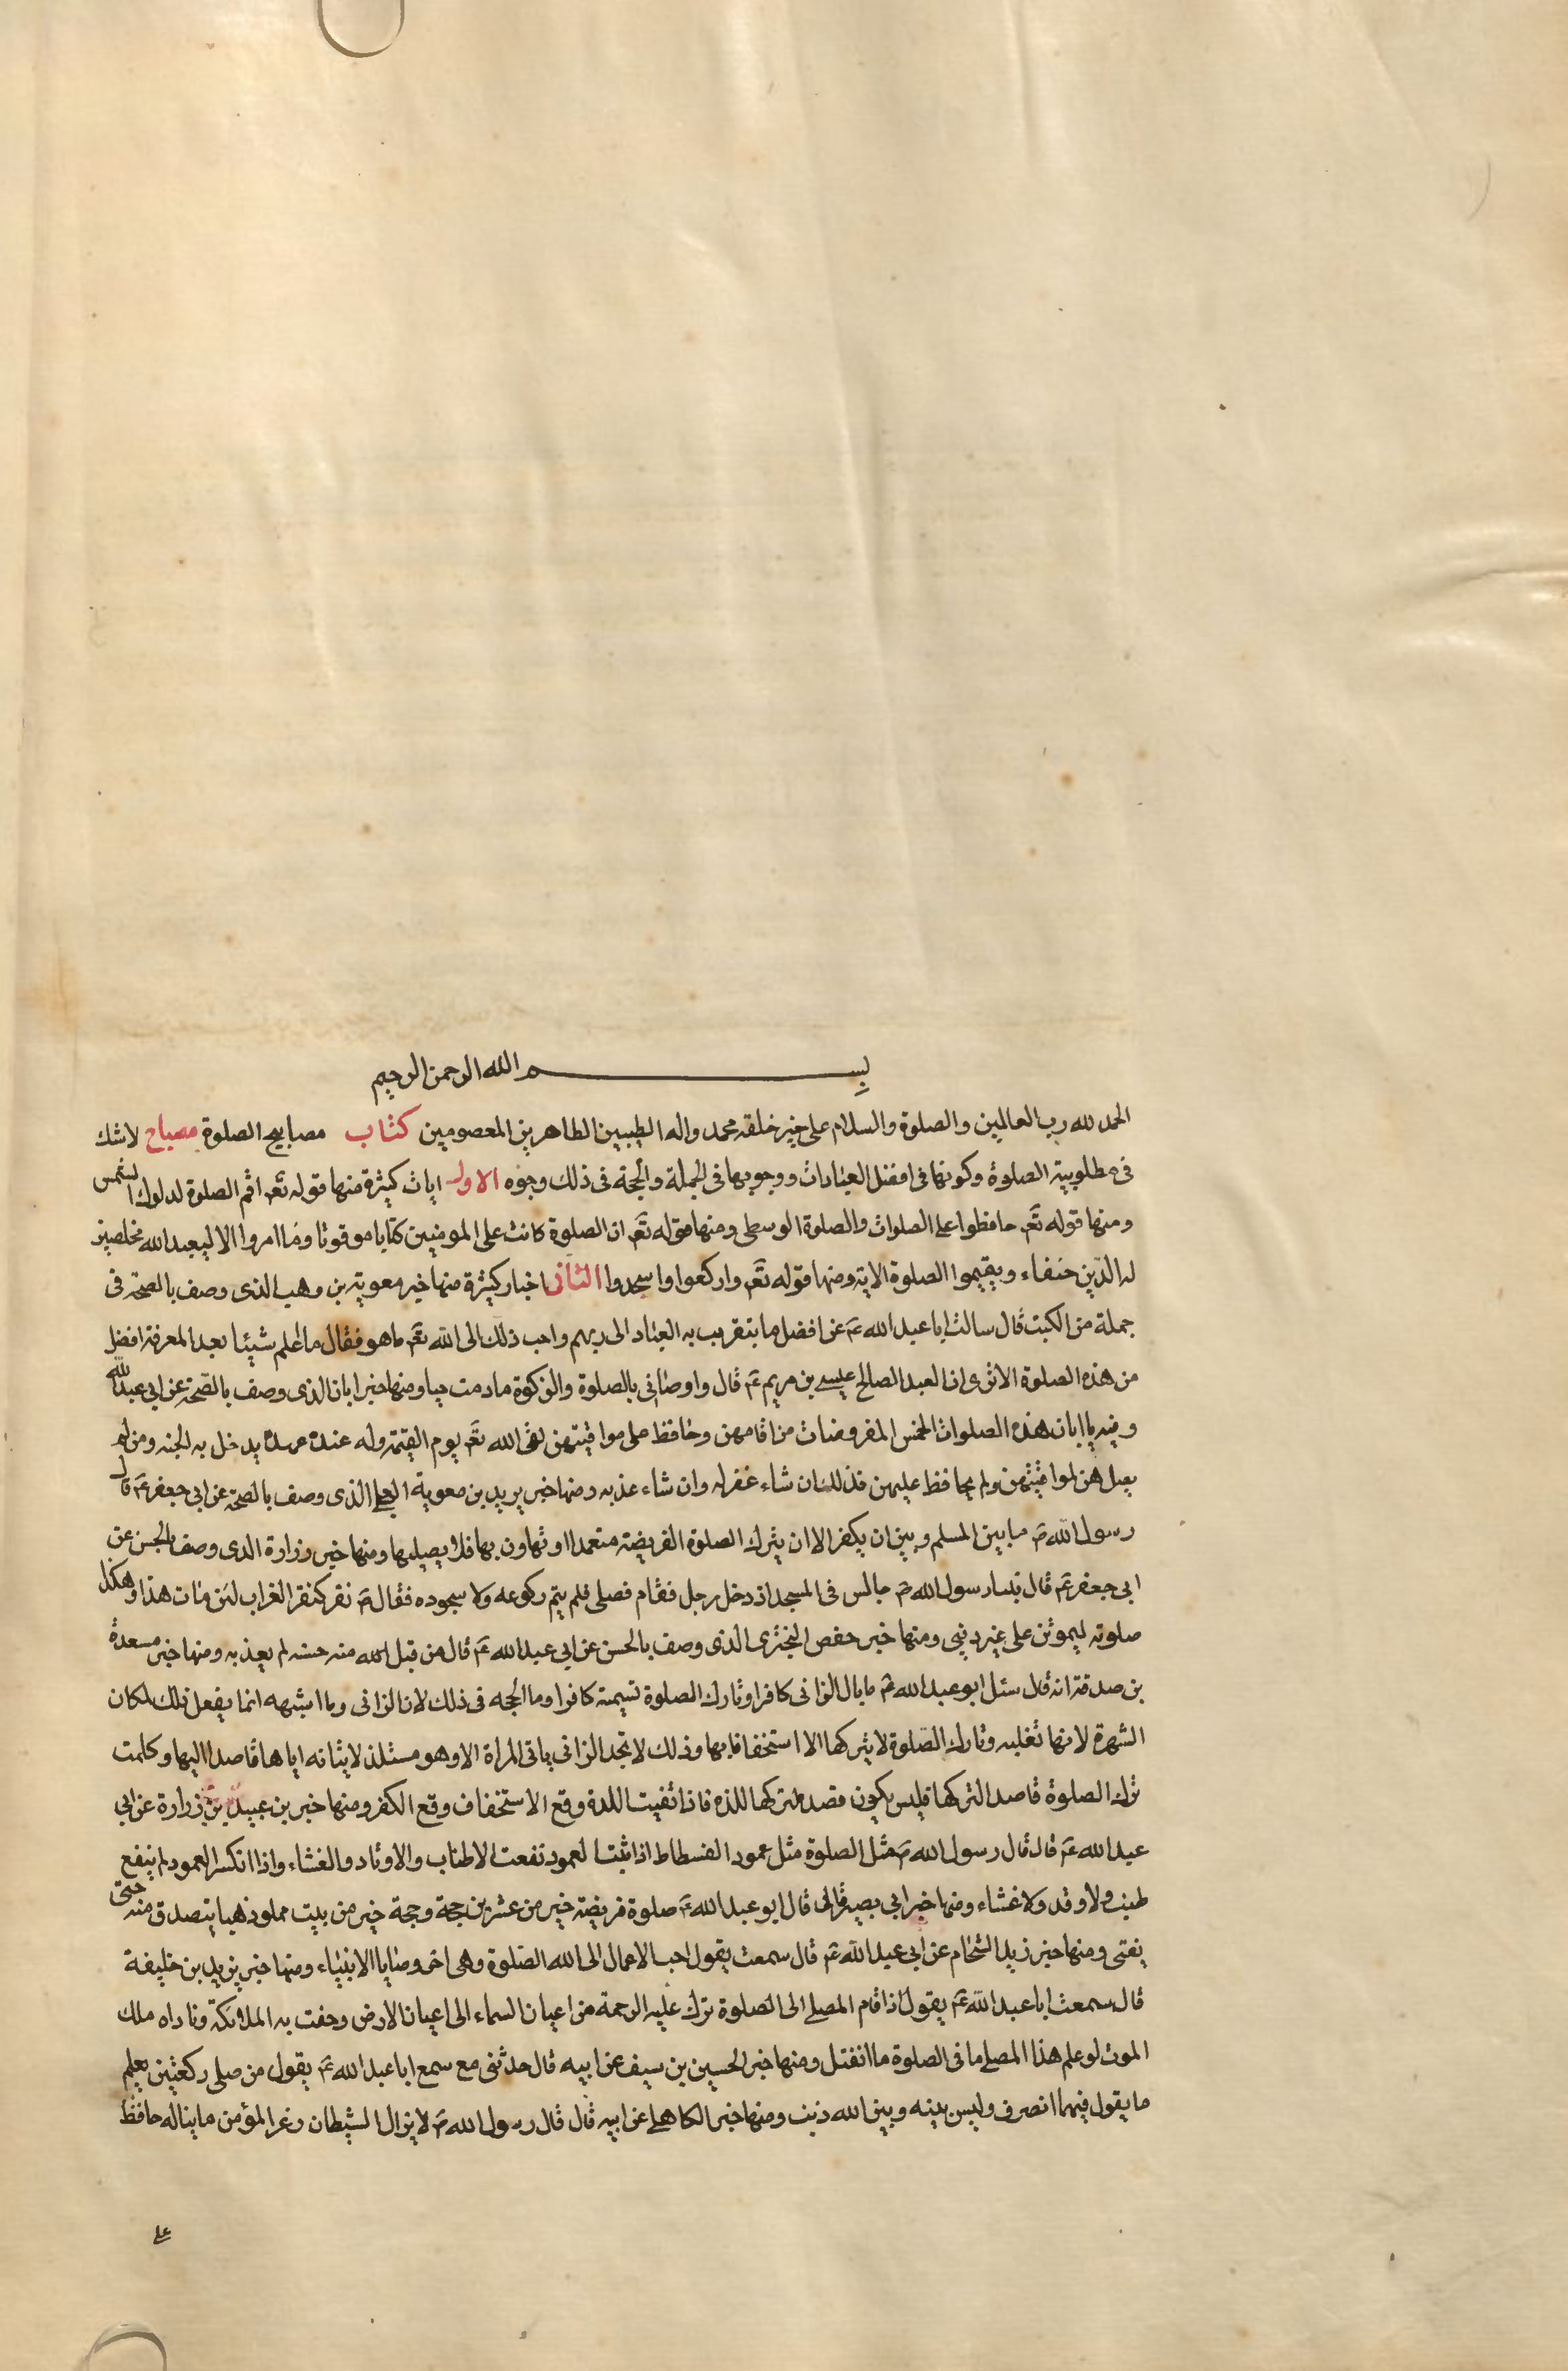 بسم الله الرحمن الرحيم
الحمد لله رب العالمين والصلوة والسلام على خير خلقه محمد واله الطيبين الطاهرين المعصومين كتاب مصابيح الصلوة مصباح لا شك
فى مطلوبية الصلوة وكونها فى افضل العبادات ووجوبها فى الجملة والحجة فى ذلك وجوه الاول ايات كثيرة منها قوله تعم اقم الصلوة لدلوك الشمس
ومنها قوله تعم حافظوا على الصلوات والصلوة الوسطى ومنها قوله تعم ان الصلوة كانت على المومنين كتابا موقوتا وما امروا الا ليعبد الله مخلصين
له الدين حنفاء ويقيموا الصلوة الاية ومنها قوله تعم واركعوا واسجدوا الثانى اخبار كثيرة منها خبر معوية بن وهب الذى وصف بالصحة فى
جملة من الكتب قال سالت ابا عبد الله عم عن افضل ما يتقرب به العباد الى ربهم واحب ذلك الى الله تعم ما هو فقال ما اعلم شيئا بعد المعرفة افضل
من هذه الصلوة الا ترى ان العبد الصالح عيسى بن مريم عم قال واوصانى بالصلوة والزكوة ما دمت حيا ومنها خبر ابان الذى وصف بالصحة عن ابى عبد الله
وفيه يا ابان هذه الصلوات الخمس المفروضات من اقامهن وحافظ على مواقيتهن لقى الله تعم يوم القيمة وله عنده عهد يدخل به الجنة ومن لم
يصل هن لمواقيتهن ولم يحافظ عليهن فذلك ان شاء غفر له وان شاء عذبه ومنها خبر بريد بن معوية العجلى الذى وصف بالصحة عن ابى جعفر عم قال
رسول الله ص ما بين المسلم وبين ان يكفر الا ان يترك الصلوة الفريضة متعمدا او تهاون بها فلا يصليها ومنها خبر زرارة الذى وصف بالحسن عن
ابى جعفر عم قال بينا رسول الله ص جالس فى المسجد اذ دخل رجل فقام فصلى فلم يتم ركوعه ولا سجوده فقال ص نقر كنقر الغراب لئن مات هذا وهكذا
صلوته ليموتن على غير دينى ومنها خبر حفص البخترى الذى وصف بالحسن عن ابى عبد الله عم قال من قبل الله منه حسنه لم يعذبه ومنها خبر مسعدة
بن صدقة انه قال سئل ابو عبد الله عم ما بال الزانى كافرا وتارك الصلوة تسيمه كافرا وما الحجه فى ذلك لان الزانى وما اشبهه انما يفعل ذلك لمكان
الشهرة لانها تغلبه وتارك الصلوة لا يتركها الا استخفافا بها وذلك لا تجد الزانى ياتى المراة الا وهو مستلذ لاتيانه اياها قاصدا اليها وكلمت
ترك الصلوة قاصدا لتركها فليس يكون قصده لتركها للذه فاذا نفيت اللذة وقع الاستخفاف وقع الكفر ومنها خبر بن عبيد بن زرارة عن ابى
عبد الله عم قال قال رسول الله ص مثل الصلوة مثل عمود الفسطاط اذا ثبت العمود نفعت الاطناب والاوتاد والغشاء واذا انكسر العمود لم ينفع
طنب ولا وتد ولا غشاء ومنها خبر ابى بصير قال قال ابو عبد الله عم صلوة فريضة خير من عشرين حجة وحجة خير من بيت مملو ذهبا يتصدق منه حتى
يفنى ومنها خبر زيد الشحام عن ابى عبد الله عم قال سمعت يقول احب الاعمال الى الله الصلوة وهى اخر وصايا الانبياء ومنها خبر يزيد بن خليفة
قال سمعت ابا عبد الله عم يقول اذا قام المصلى الى الصلوة نزلت عليه الرحمة من اعيان السماء الى اعيان الارض وحفت به الملائكة وناداه ملك
الموت لو علم هذا المصلى ما فى الصلوة ما انفتل ومنها خبر الحسين بن سيف عن ابيه قال حدثنى مع سمع ابا عبد الله عم يقول من صلى ركعتين يعلم
ما يقول فيهما انصرف وليس بينه وبين الله ذنب ومنها خبر الكاهلى عن ابيه قال قال رسول الله ص لا يزال الشيطان زعرا المؤمن ما يناله حافظ
على